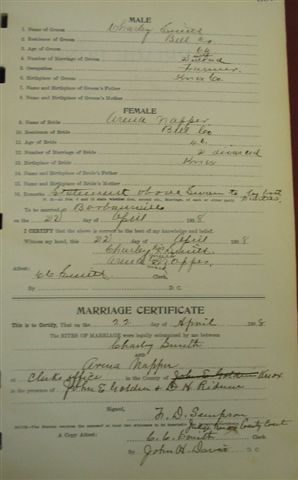 MALE
1. Name of Groom Charley Smith
2. Residence of Groom Bell Co
3. Age of Groom 66
4. Number of Marriage of Groom Second
5. Occupation Farmer
6. Birthplace of Groom Knox Co
7. Name and Birthplace of Groom's Father
8. Name and Birthplace of Groom's Mother
FEMALE
9. Name of Bride Napper
10. Residence of Bride Bell Co
11. Age of Bride
12. Number of Marriage of Bride 2 divorced
13. Birthplace of Bride Knox
14. Name and Birthplace of Bride's Father
15. Name and Birthplace of Bride's Mother
16. Remarks Statement above Sworn to by both Parties
To be married at Barbourville
on the 22 day of April 1908
I CERTIFY that the above is correct to the best of my knowledge and belief.
Witness my hand, this 22 day of April 1908
Charley Smith
Napper
Attest:
CC Smith Clerk.
By D. C.
MARRIAGE CERTIFICATE
This is to Certify, That on the 22 day of April 1908
The RITES OF MARRIAGE were legally solemnized by me between
Charley Smith
AND
Napper
at Clerks office in the County of John E Golden Knox
in the presence of John E Golden & D H Ridner
Signed, F. D. Sampson
Judge Knox County Court
A Copy Attest: C. C. Smith Clerk
By John H Davis D.C.